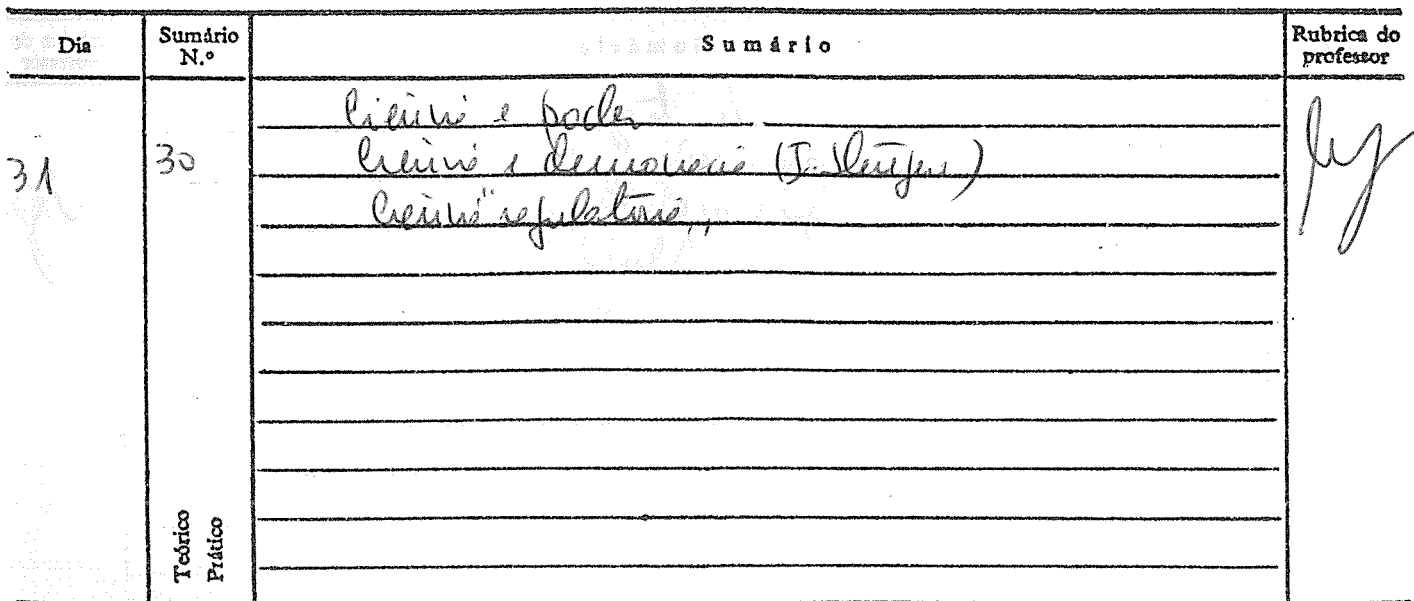 Dia Sumário N.º Sumário Rubrica do professor
Ciência e poder
31 30 Ciência e democracia (I. Stengers)
Ciência "regulatória"
Teórico
Prático